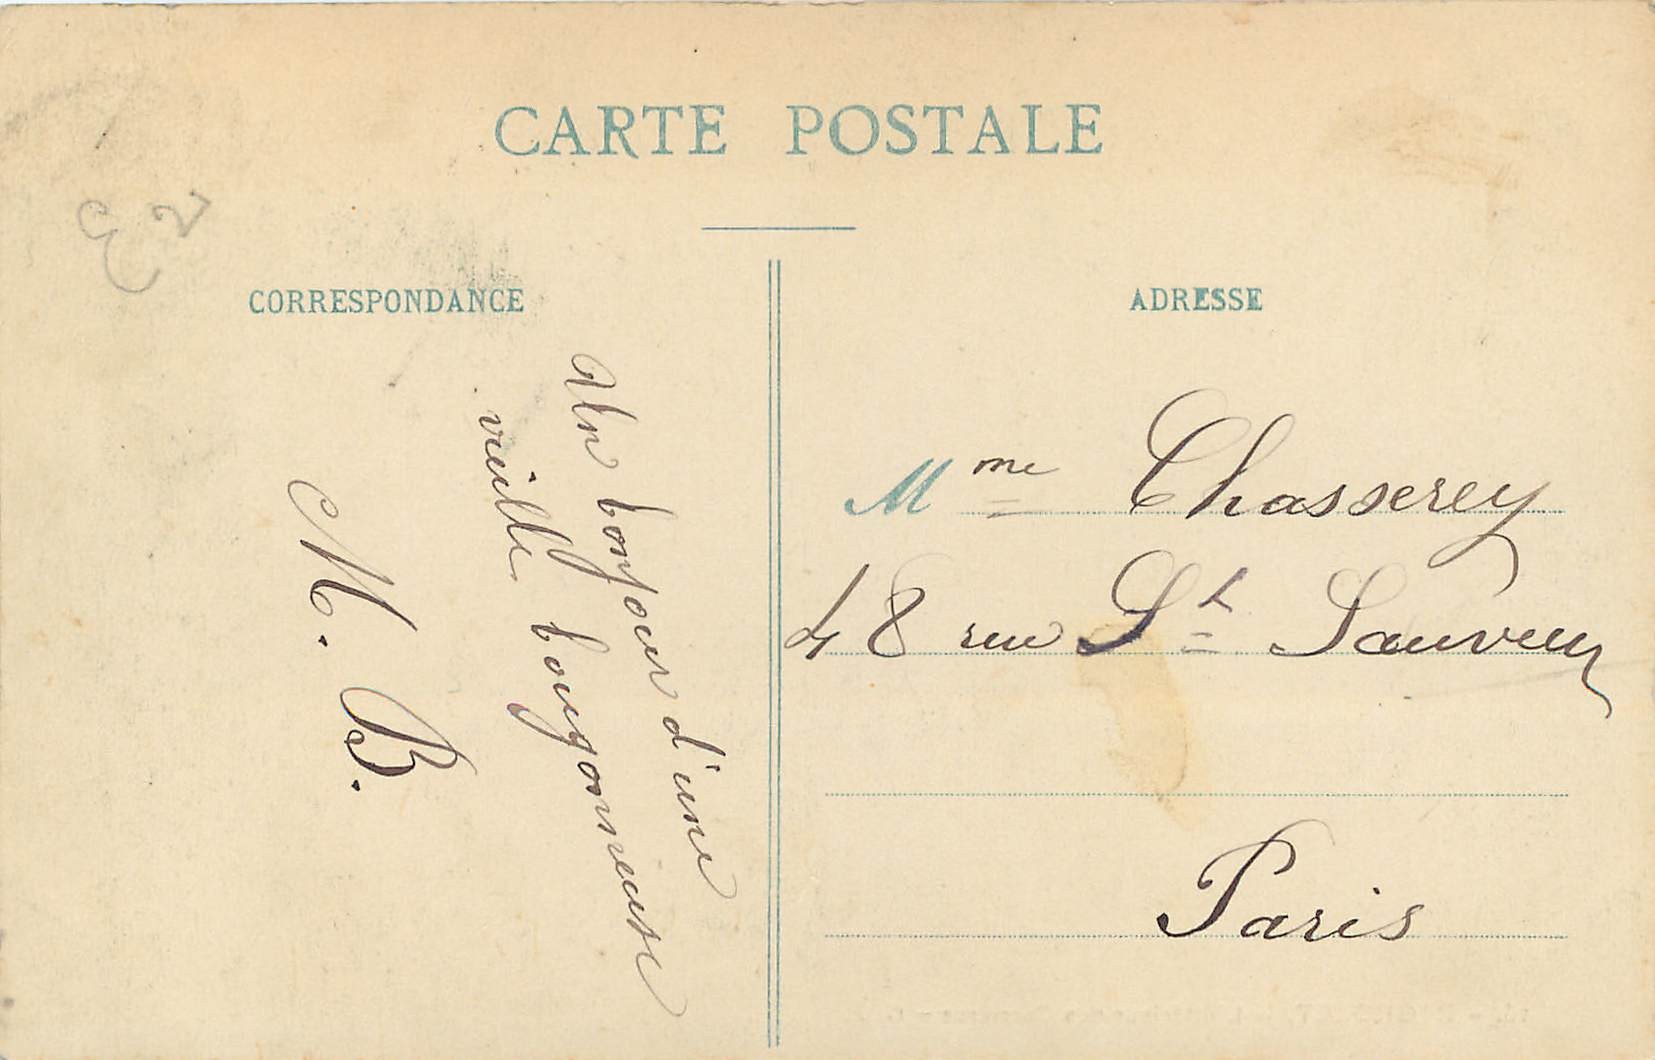 CARTE POSTALE
CORRESPONDANCE
Un bonjour d'une
vieille bougonneuse
M. B.
ADRESSE
Mme Chasserey
48 rue St Sauveur
Paris